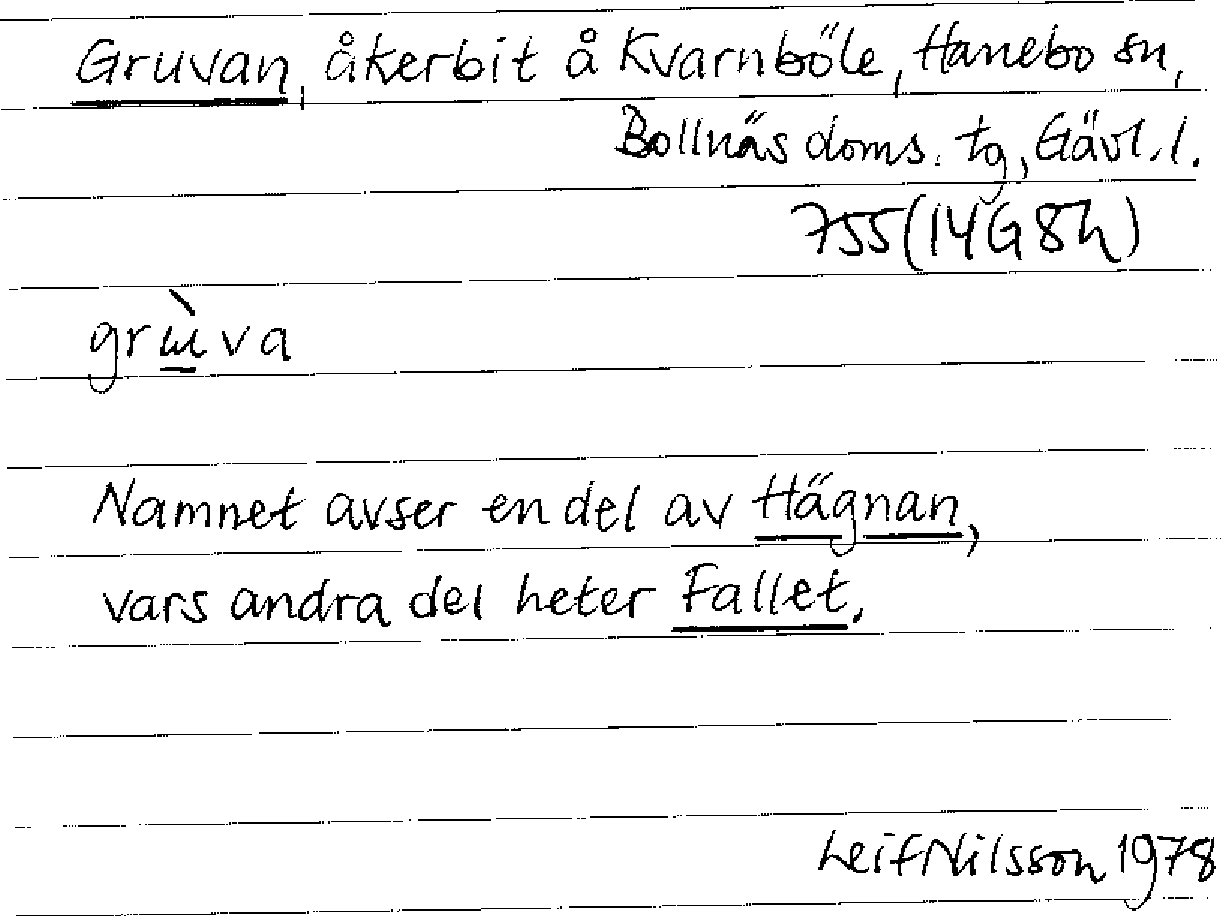 Gruvan, åkerbit å Kvarnböle, Hanebo sn,
Bollnäs doms. tg, Gävl. l.
755 (14G 8h)
grɯ̱̀va
Namnet avser en del av Hägnan,
vars andra del heter Fallet.
Leif Nilsson 1978